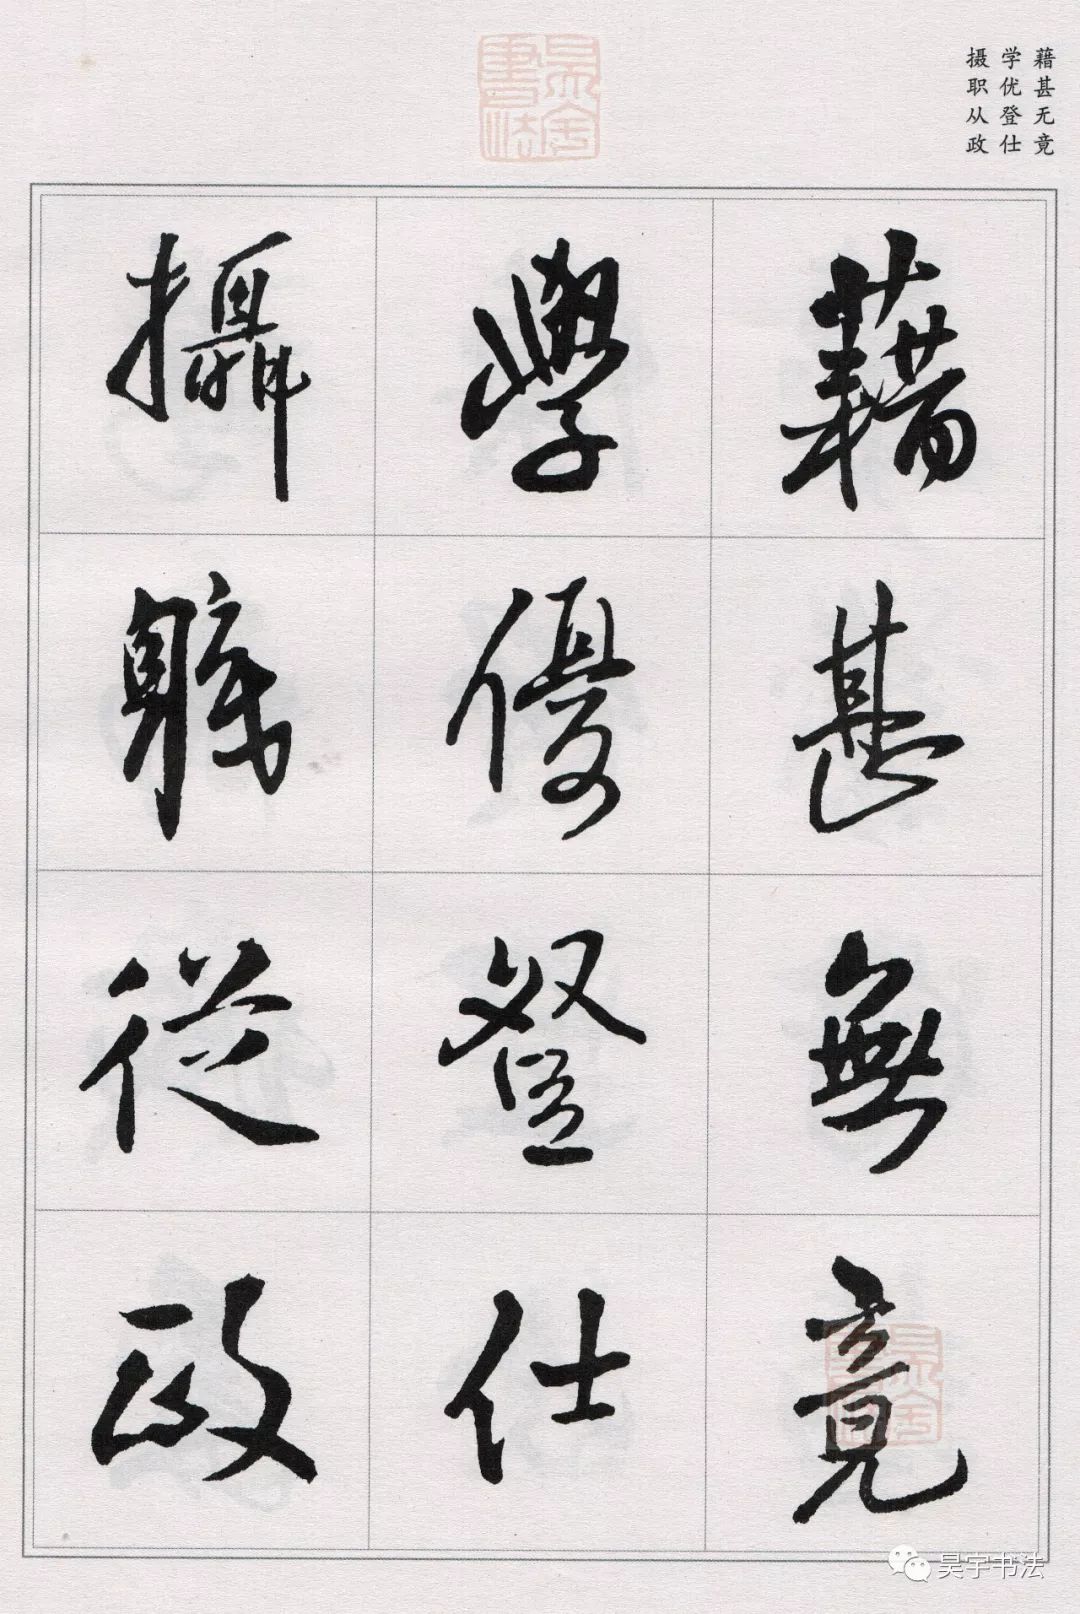 藉甚无竟
学优登仕
摄职从政
藉甚無竟
學優登仕
攝職從政
昊宇书法